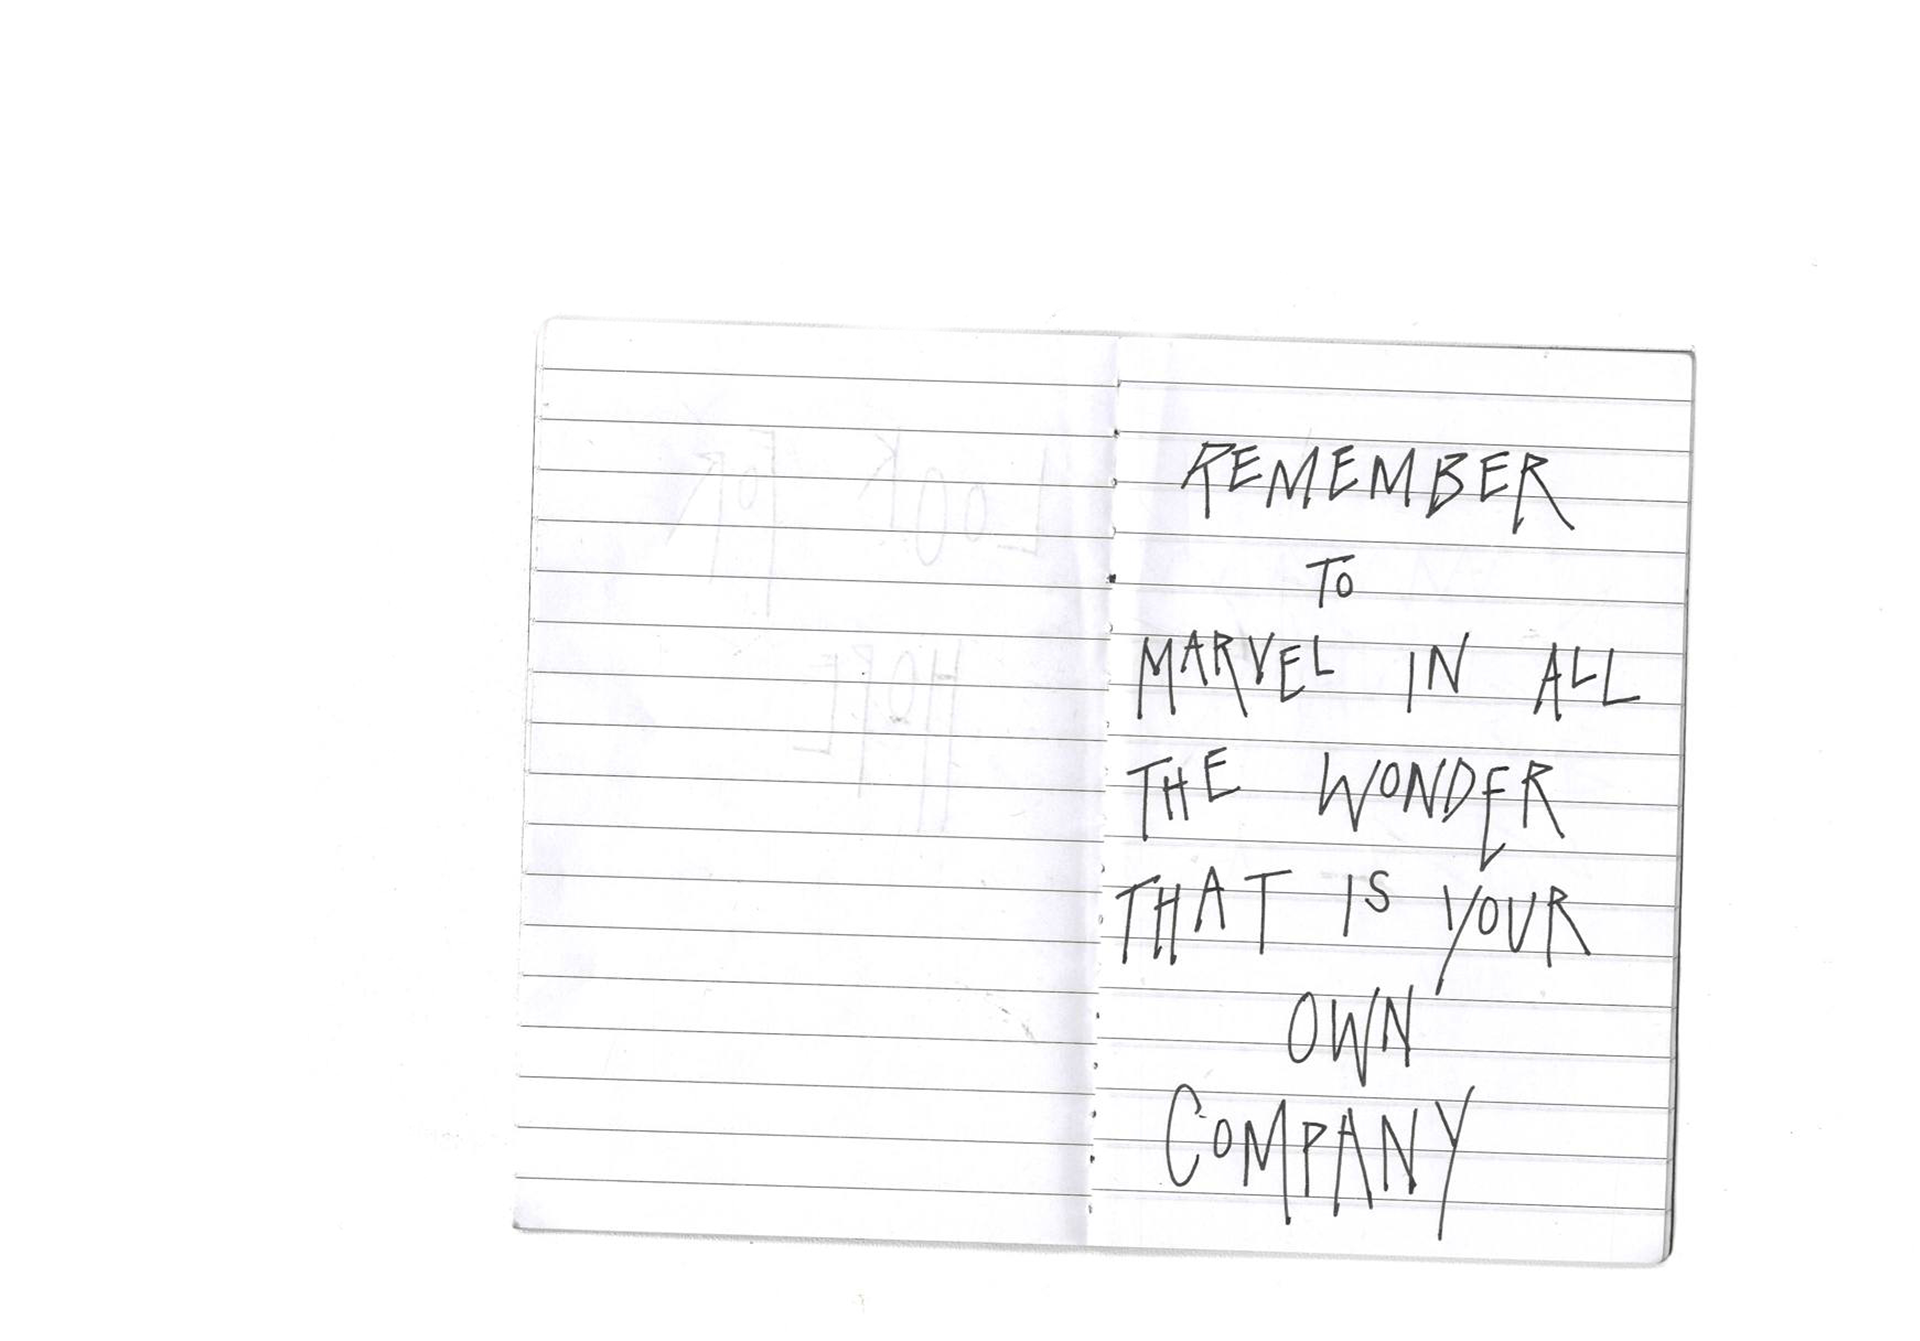 LOOK FOR
HOPE
REMEMBER
TO
MARVEL IN ALL
THE WONDER
THAT IS YOUR
OWN
COMPANY